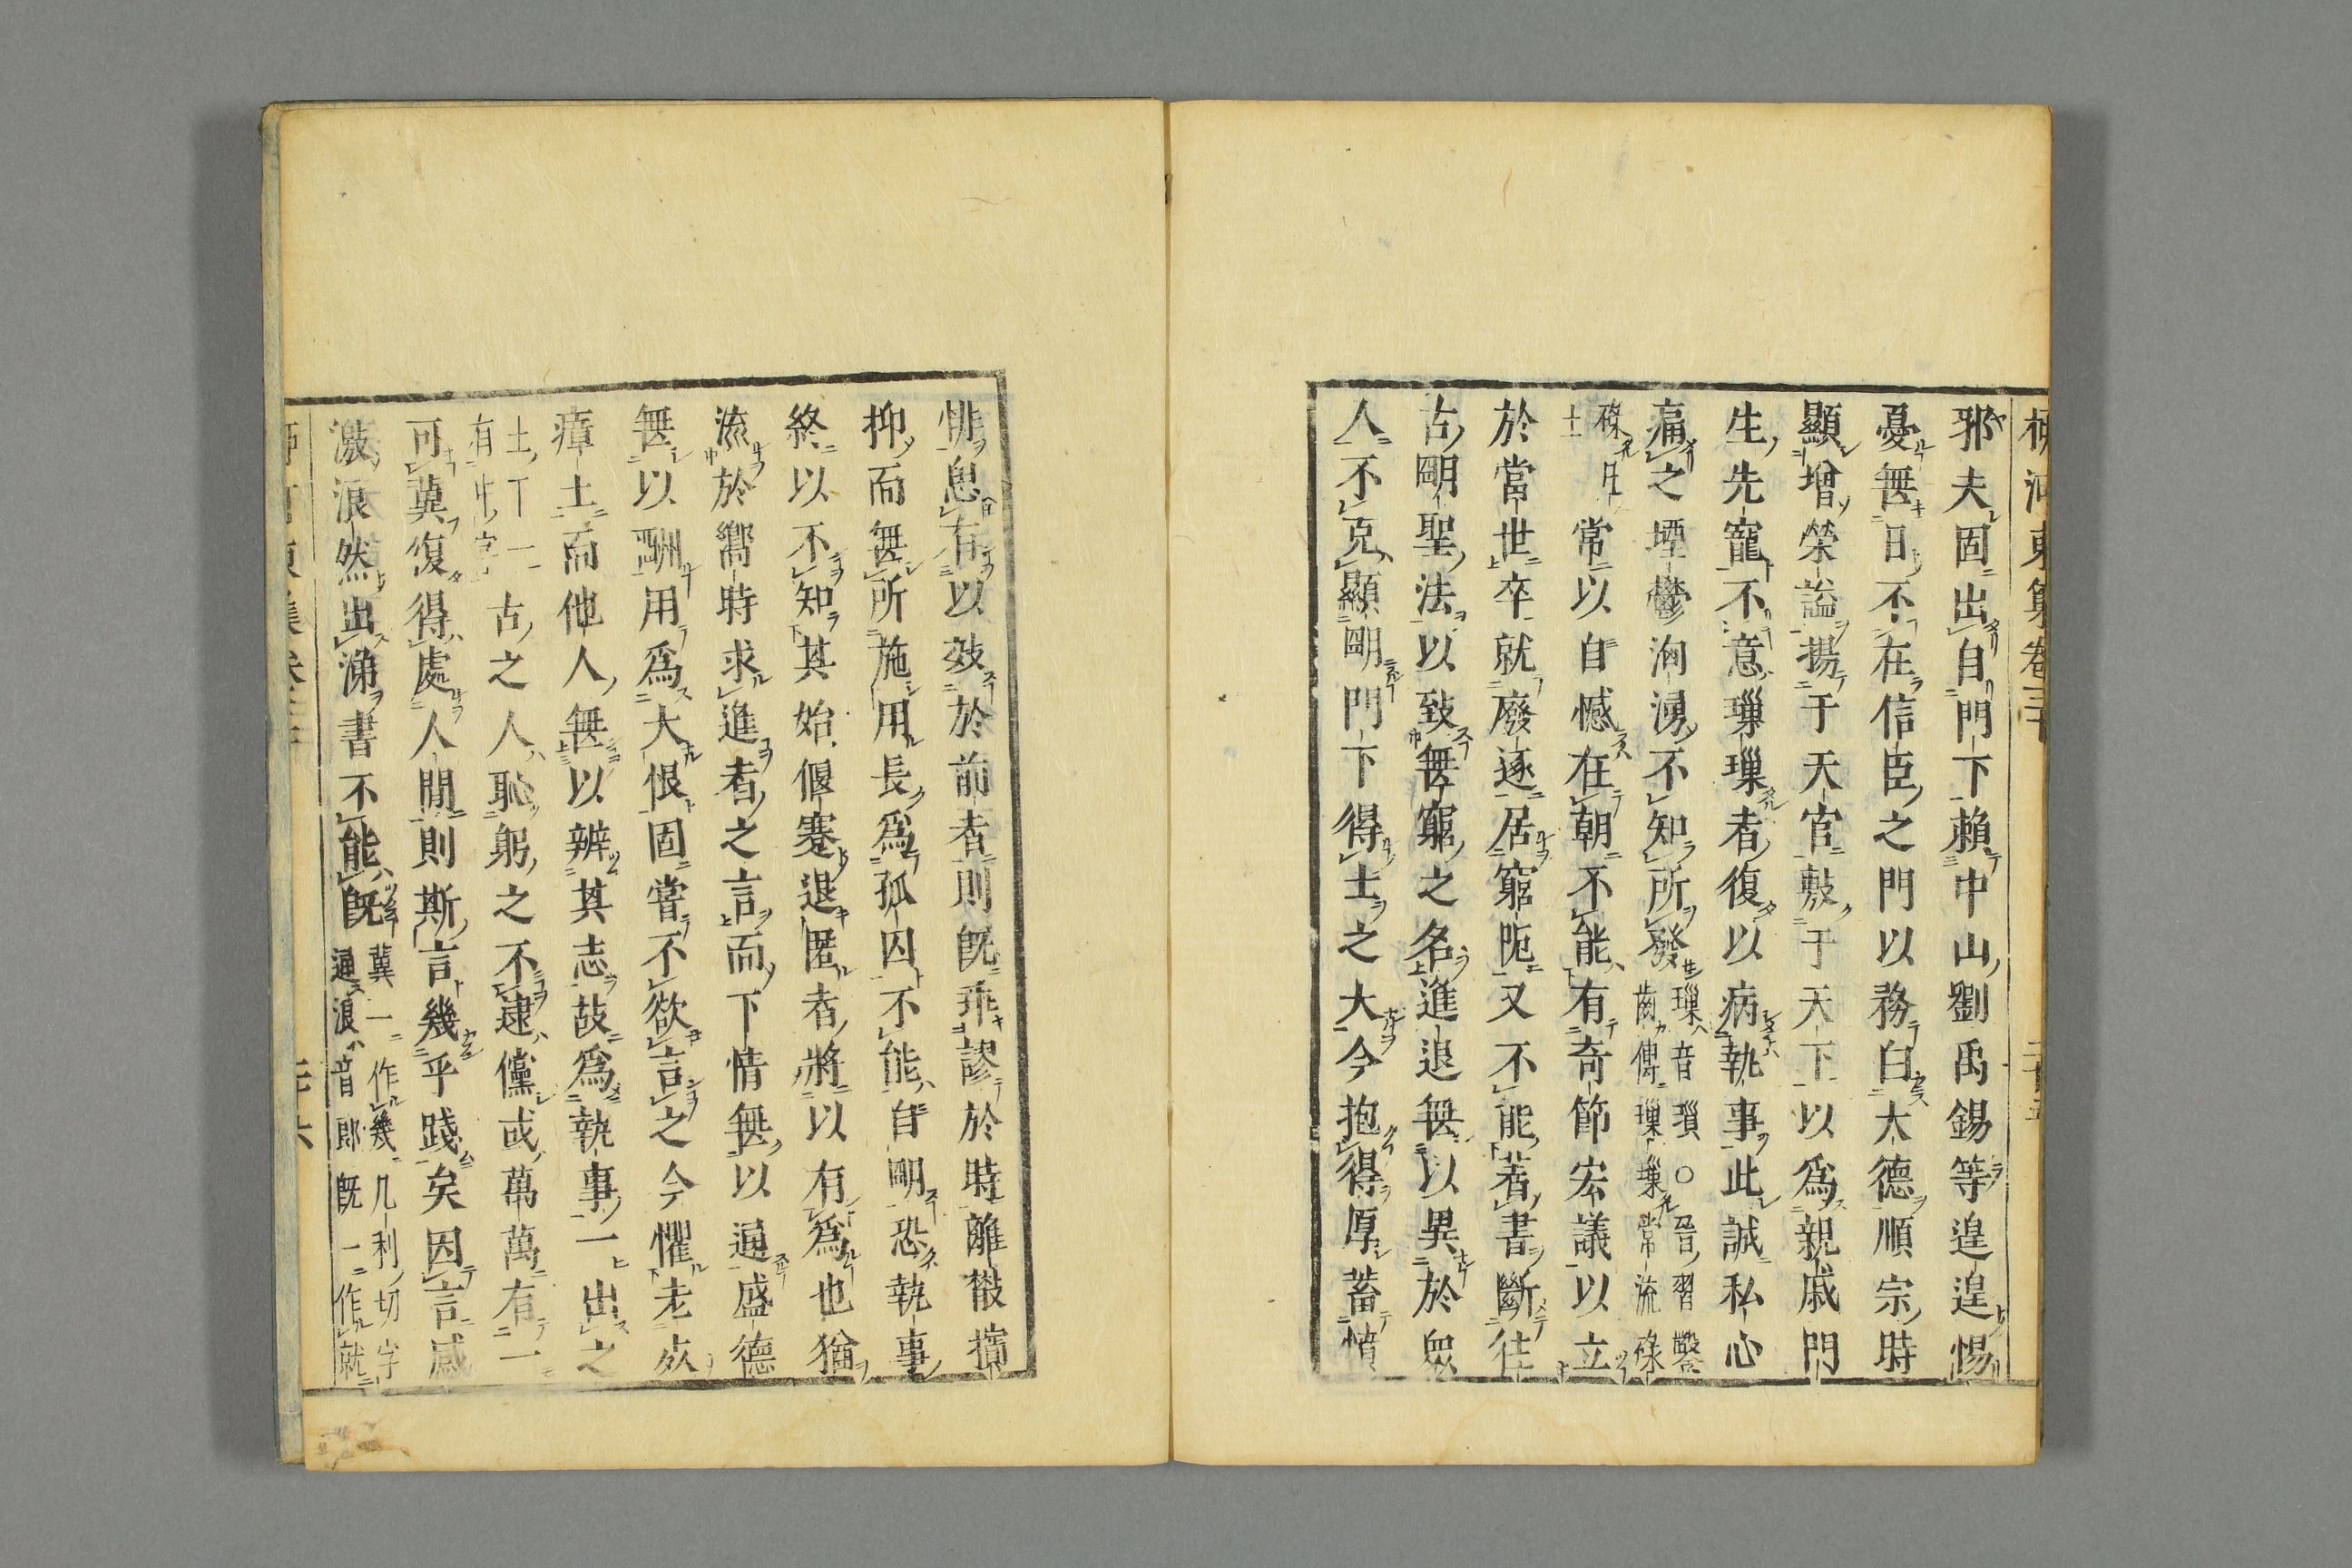 柳河東集卷三十
邪夫固出自門下賴中山劉禹錫等遑遑惕
憂無日不在信臣之門以務白大德順宗時
顯增榮謚揚于天官敷于天下以為親戚門
生先寵不意璅璅者復以病執事此誠私心
痛之堙鬱洶湧不知所發璅音瑣〇習鑿
齒傳璅璅常流碌
碌凡
士常以自憾在朝不能有奇節宏議以立
於當世卒就廢逐居窮阨又不能著書斷往
古明聖法以致無窮之名進退無以異於衆
人不克顯明門下得士之大今抱得厚蓄憤
悱息有以效於前者則既乖謬於時離散擯
抑而無所施用長為孤囚不能自明恐執事
終以不知其始偃蹇退匿者將以有為也猶
流於嚮時求進者之言而下情無以通盛德
無以酬用為大恨固嘗不欲言之今懼老死
瘴土而他人無以辨其志故為執事一出之
土下一
有此字古之人恥躬之不逮儻或萬萬有一
可冀復得處人間則斯言幾乎踐矣因言感
激浪然出涕書不能既冀一作幾几利切字
通浪音郎既一作就